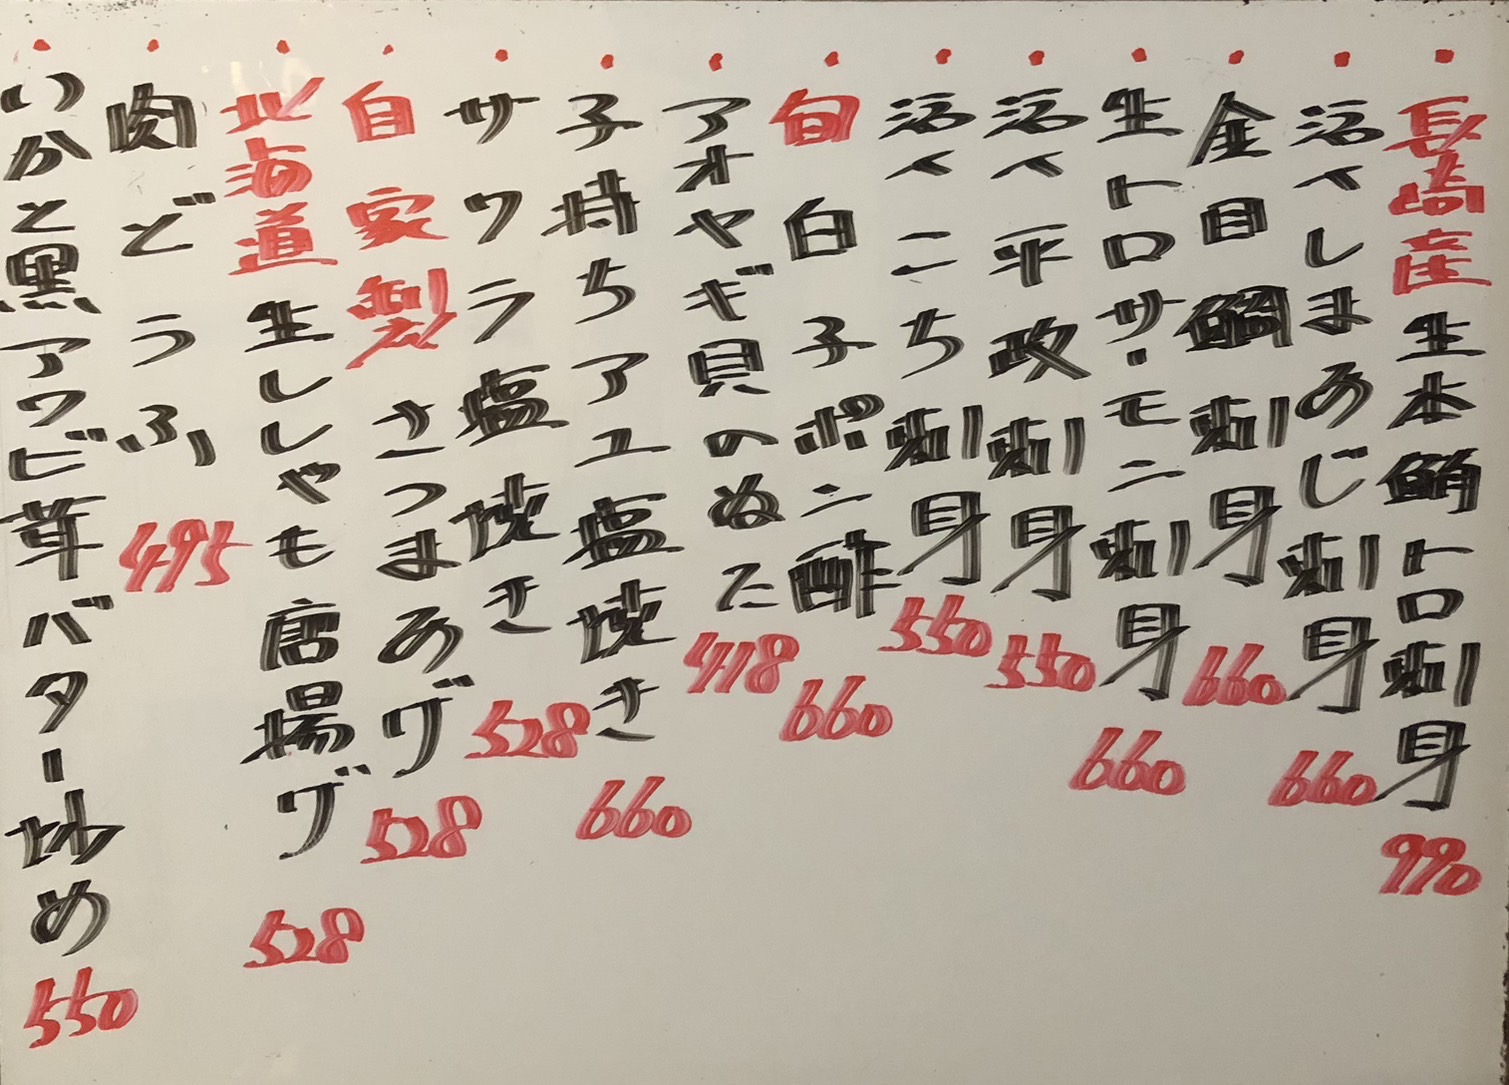 ・長崎産生本鮪トロ刺身 990
・活〆しまあじ刺身 660
・金目鯛刺身 660
・生トロサーモン刺身 660
・活〆平政刺身 550
・活〆こち刺身 550
・旬白子ポン酢 660
・アオヤギ貝のぬた 418
・子持ちアユ塩焼き 660
・サワラ塩焼き 528
・自家製さつまあげ 528
・北海道生ししゃも唐揚げ 528
・肉どうふ 495
・いかと黒アワビ茸バター炒め 550